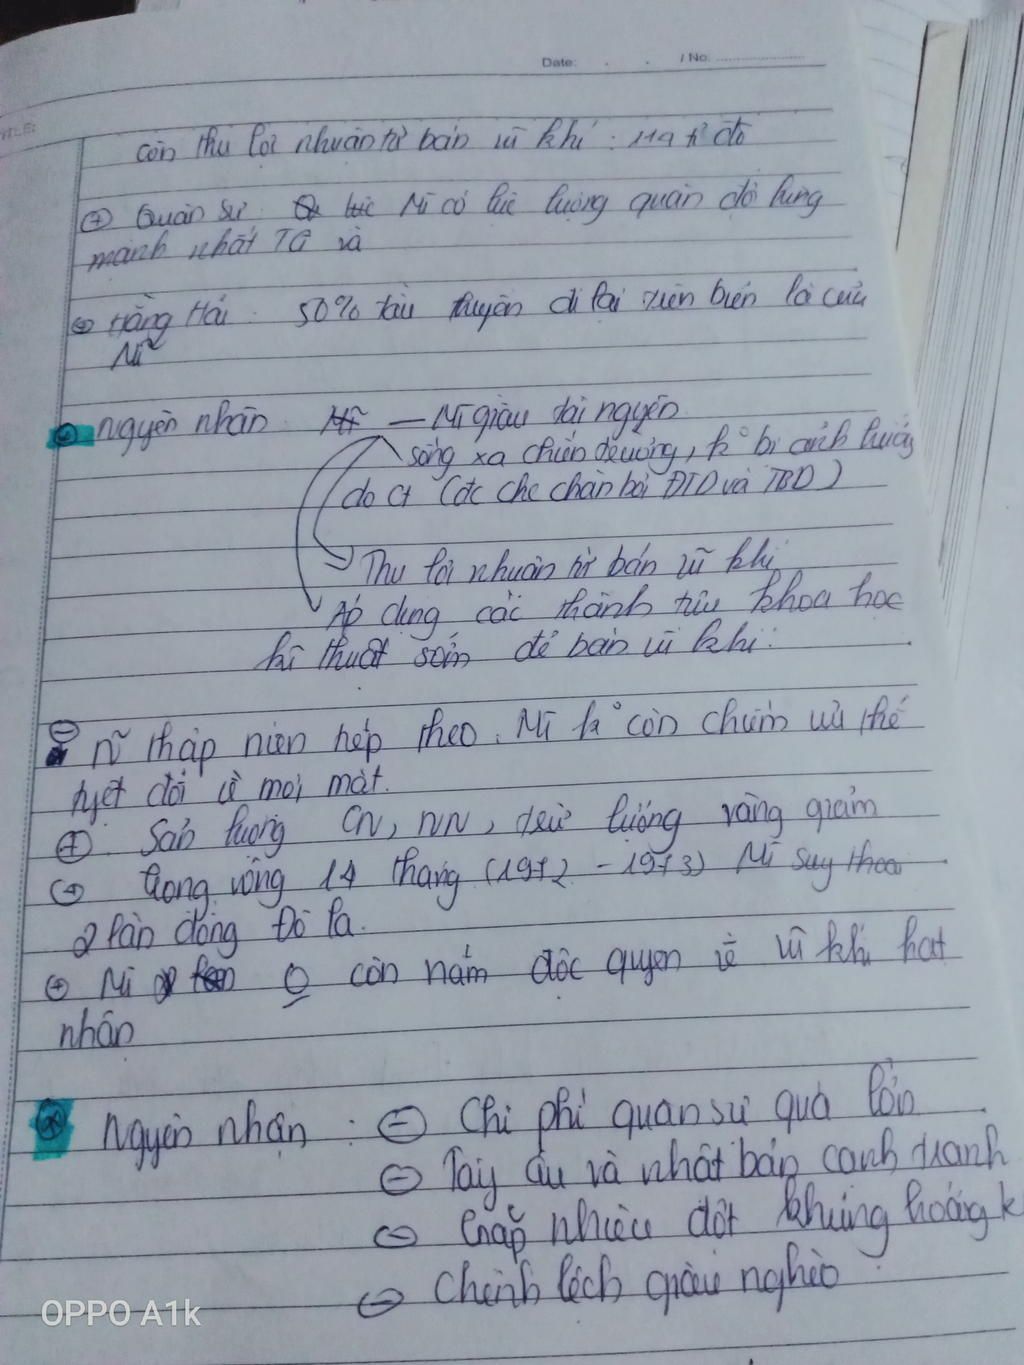 Date: . . / No.
còn thu lợi nhuận từ bán vũ khí : 114 tỉ đô
⊕ Quân sự Mĩ có lực lượng quân đội hùng
mạnh nhất TG và
⊕ Hằng Hải : 50% tàu thuyền đi lại trên biển là của
Mĩ
nguyên nhân — Mĩ giàu tài nguyên
sống xa chiến trường, k° bị ảnh hưởng
do ct (đc che chắn bởi ĐTD và TBD)
Thu lợi nhuận từ bán vũ khí
Áp dụng các thành tựu khoa học
kĩ thuật sớm để bán vũ khí.
⊖ n~ thập niên tiếp theo, Mĩ k° còn chiếm ưu thế
tuyệt đối về mọi mặt.
⊕ Sản lượng CN, NN, trữ lượng vàng giảm
⊕ trong vòng 14 tháng (1972 - 1973) Mĩ suy thoái
2 lần đồng Đô la.
⊕ Mĩ còn nắm độc quyền về vũ khí hạt
nhân
⊛ Nguyên nhận : ⊖ Chi phí quân sự quá lớn
⊖ Tây âu và nhật bản cạnh tranh
⊖ Gặp nhiều đợt khủng hoảng k
⊖ Chênh lệch giàu nghèo
OPPO A1k